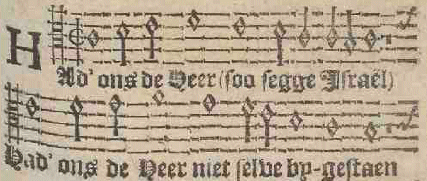 HAd' ons de Heer (soo segge Israël)
Had' ons de Heer niet selve by-gestaen